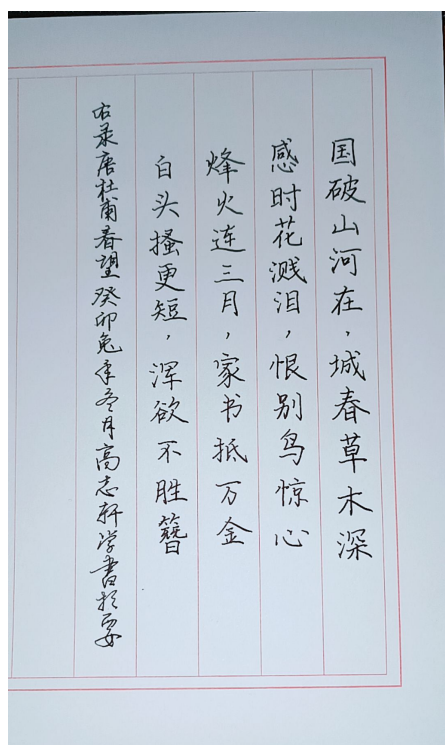 国破山河在，城春草木深
感时花溅泪，恨别鸟惊心
烽火连三月，家书抵万金
白头搔更短，浑欲不胜簪
右录唐杜甫春望癸卯兔年冬月高志轩学书于